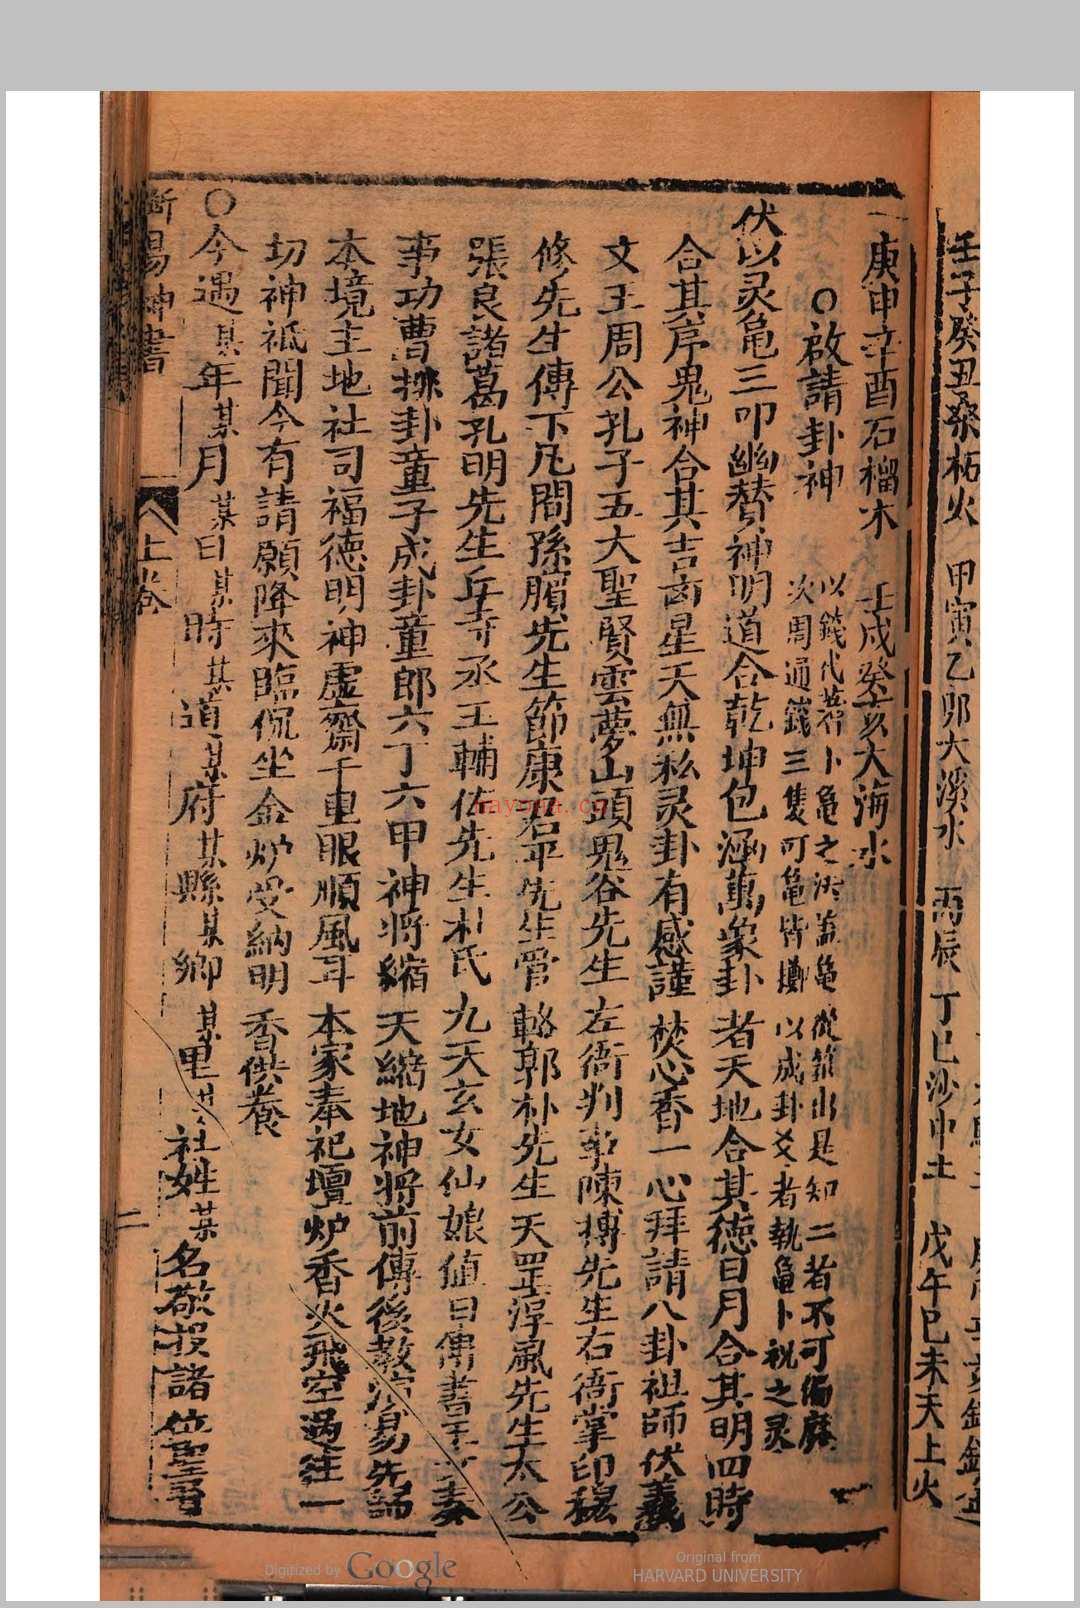 壬子癸丑桑柘火 甲寅乙卯大溪水 丙辰丁巳沙中土 戊午己未天上火
庚申辛酉石榴木 壬戌癸亥大海水
○啟請卦神
以錢代蓍卜龜之法盖龜從籠出是知二者不可偏廢
次周通錢三隻可龜皆擲以成卦爻者執龜卜祝之灵
伏以灵龟三叩幽賛神明道合乾坤包涵萬象卦者天地合其德日月合其明四時
合其序鬼神合其吉凶星天無私灵卦有感謹焚心香一心拜請八卦祖師伏羲
文王周公孔子五大聖賢雲夢山頭鬼谷先生左衙判事陳摶先生右衙掌印穆
修先生傳下凡間孫臏先生節康君平先生管輅郭朴先生天罡淳風先生太公
張良諸葛孔明先生丘寺丞王輔佐先生朴氏九天玄女仙娘值日傳書玉女奏
事功曹排卦童子成卦童郎六丁六甲神将縮天縮地神将前傳後教演易先師
本境主地社司福德明神虛齋千里眼順風耳本家奉祀壇炉香火飛空過往一
切神祇聞今有請願降來臨侃坐金炉受納明香供養
○今遇某年某月某日某時某道某府某縣某鄉某里某社姓某名敬投諸位聖前
斷易神書 上卷 二
Digitized by Google
Original from
HARVARD UNIVERSITY